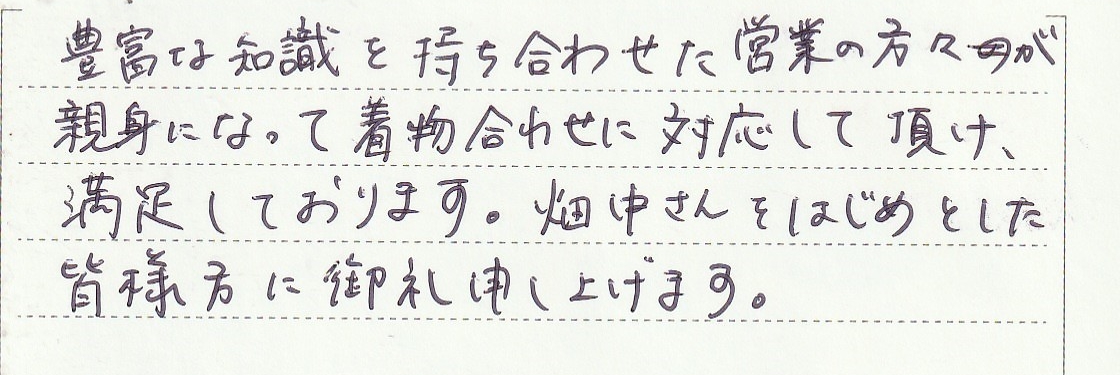 豊富な知識を持ち合わせた営業の方々が
親身になって着物合わせに対応して頂け、
満足しております。畑中さんをはじめとした
皆様方に御礼申し上げます。